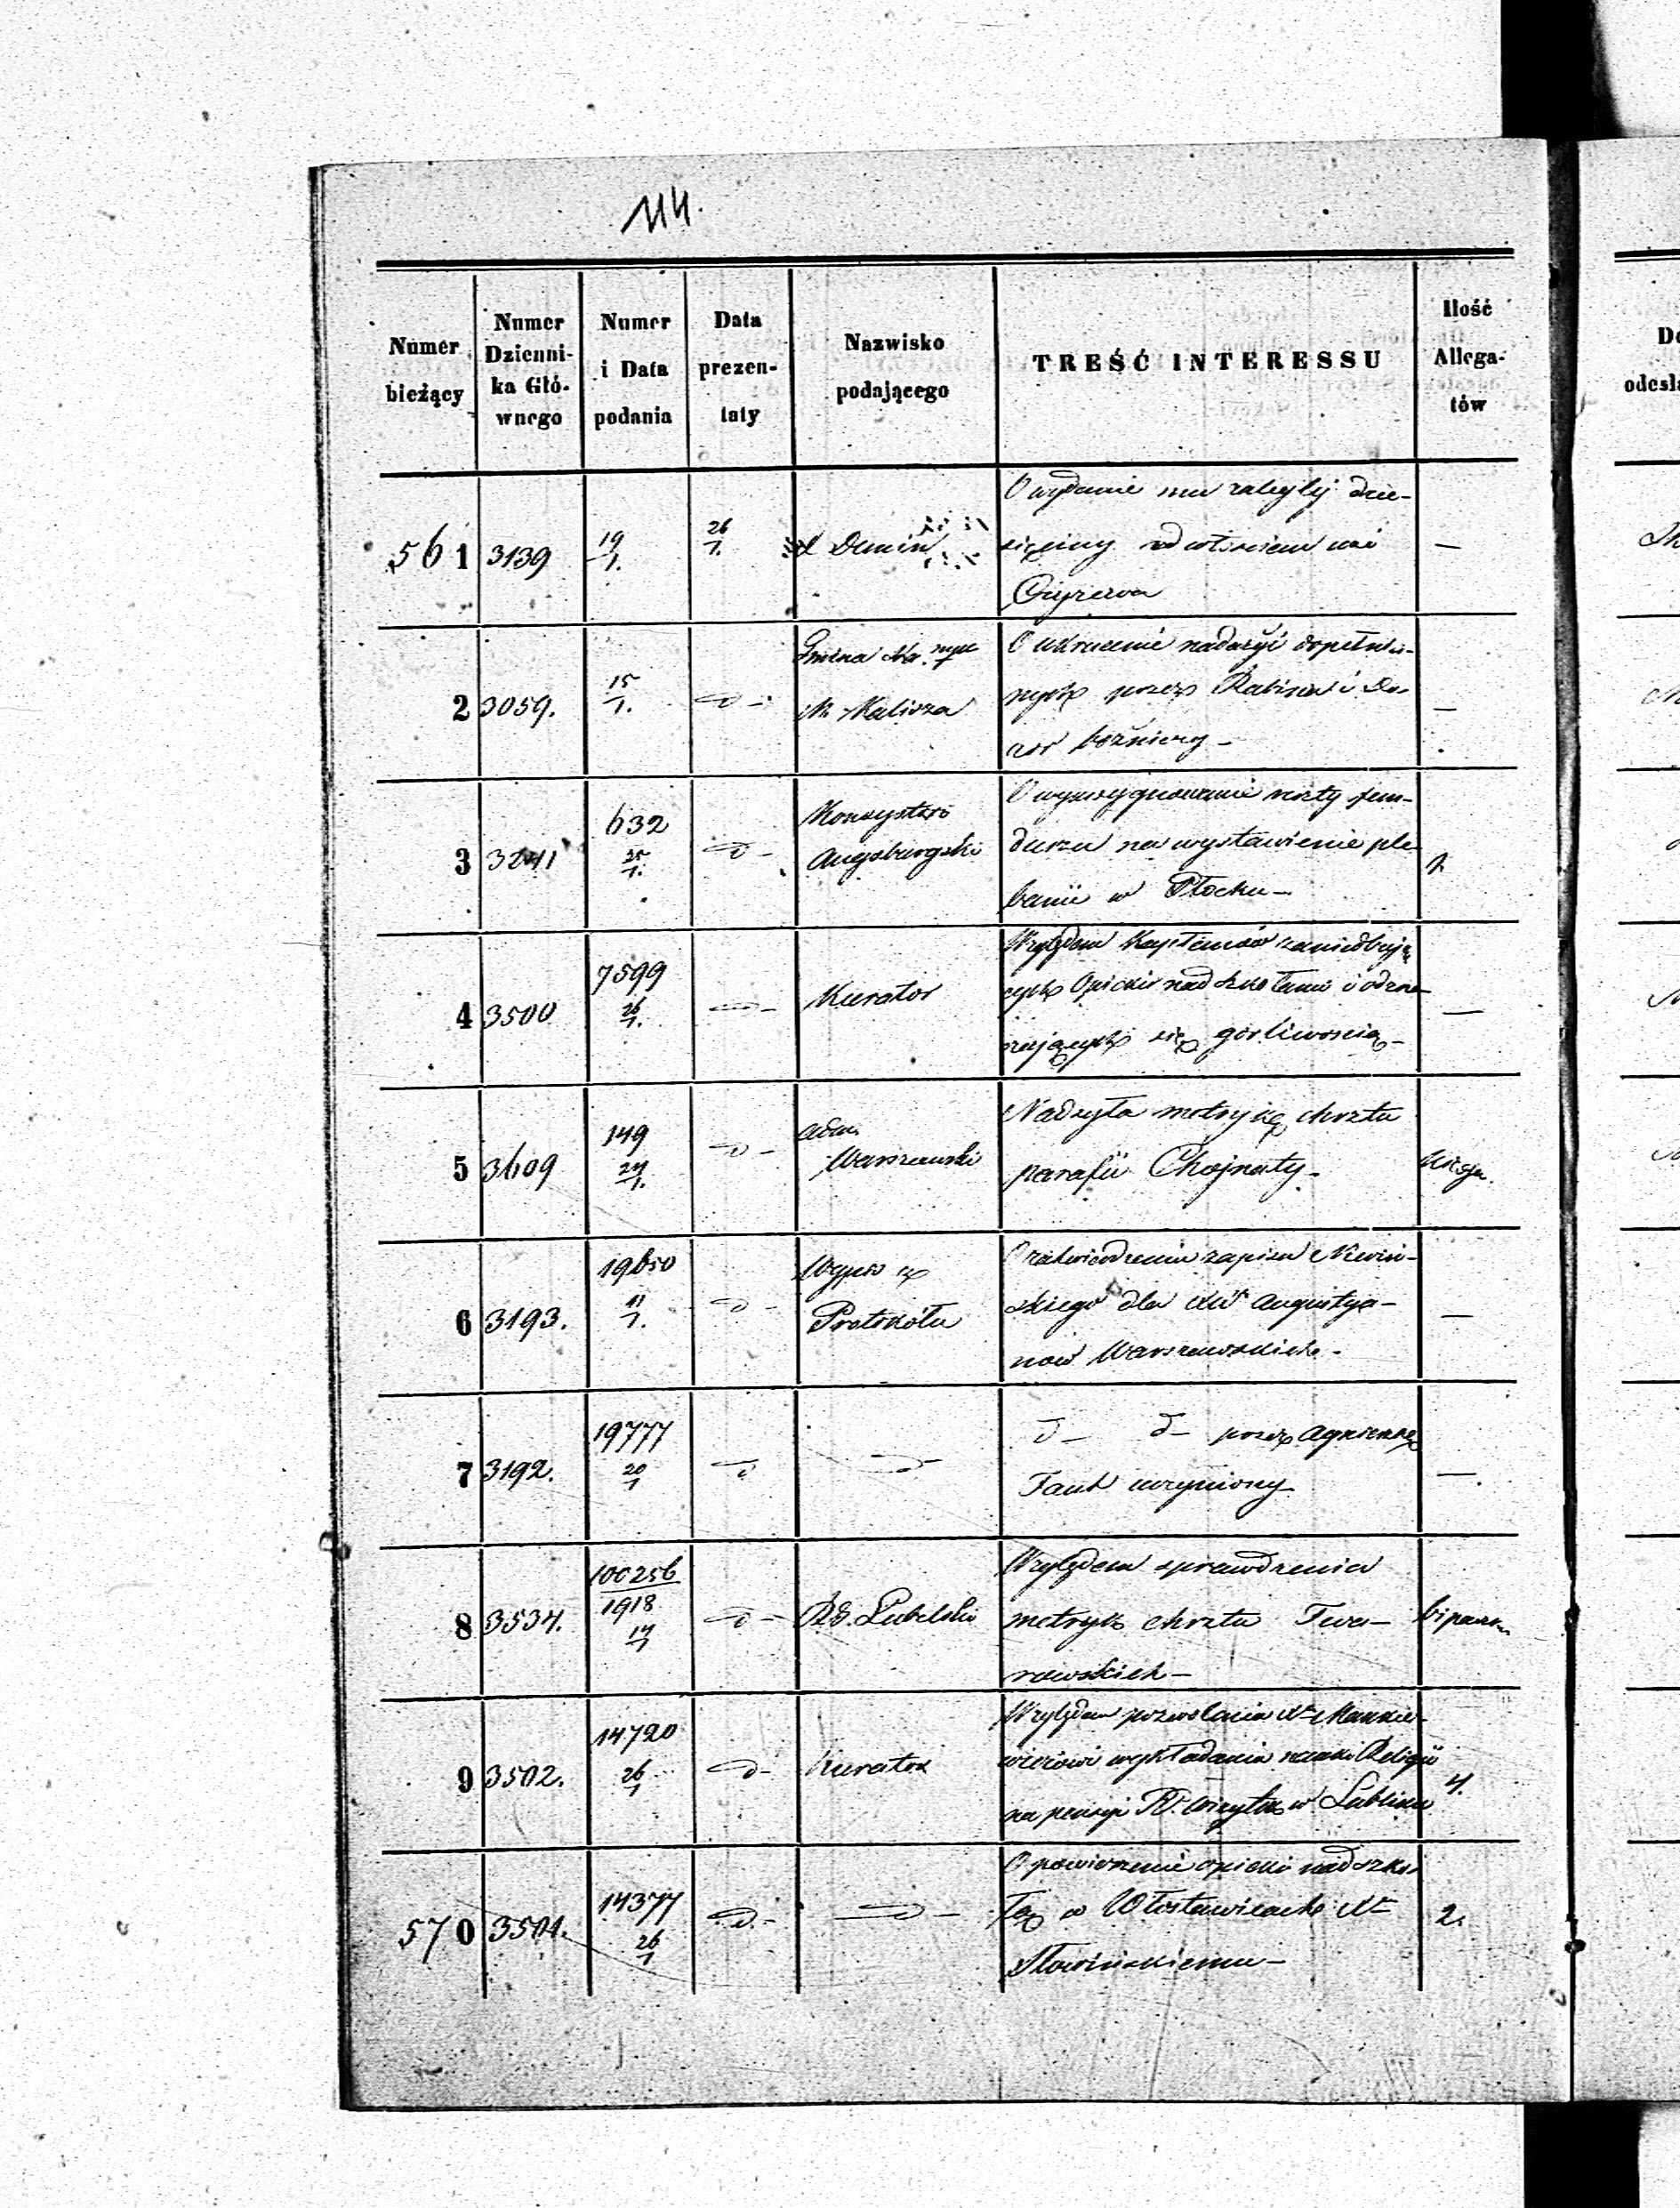 114.
Numer bieżący
Numer Dzienni-ka Głó-wnego
Numer i Data podania
Data prezen-taty
Nazwisko podającego
TREŚĆ INTERESSU
Ilość Allega-tów
561 3139 19/1. 26/1. X Dunin
O wydanie mu zaległej dzie-
sięciny od włościan wsi
—
2 3059. 15/1. d- Gmina
z Kalisza
O ukrucenie nadużyć dopełnio-
nych przez Rabina i Do-
zór bóżniczy -
—
3 3241 632 25/1. d- Konsystorz
Augsburgski
O wyasygnowanie raty fun-
duszu na wystawienie ple-
banii w Płocku -
1.
4 3500 7599 26/1. d- Kurator
Względem Xzy Plebanów zaniedbują-
cych Opieki nad szkołami i odzna-
czających się gorliwością -
—
5 3609 149 24/1. d- Adm.
Warszawski
Nadsyła metrykę chrztu
parafii Chojnaty -
Księga.
6 3193. 19650 11/1. d- Wypis z
Protokółu
O zatwierdzenie zapisu
skiego dla XX Augustya-
nów Warszawskich -
—
7 3192. 19777 20/1 d- d-
d- d- przez Agnieszkę
Fank uczyniony
—
8 3534. 100256/1918 14/1 d- Rd. Lubelski
Względem sprawdzenia
metryk chrztu Twa-
rowskich -
9 3502. 14720 26/1 d- Kurator
Względem pozwolenia X Mankie-
wiczowi wykładania nauki Religii
na pensyi PP. Wizytek w Lublinie
4.
570 3501. 14377 26/1 d- d-
O powierzenie opieki nad szko-
łą w Włostowicach X
Słowińskiemu -
2.